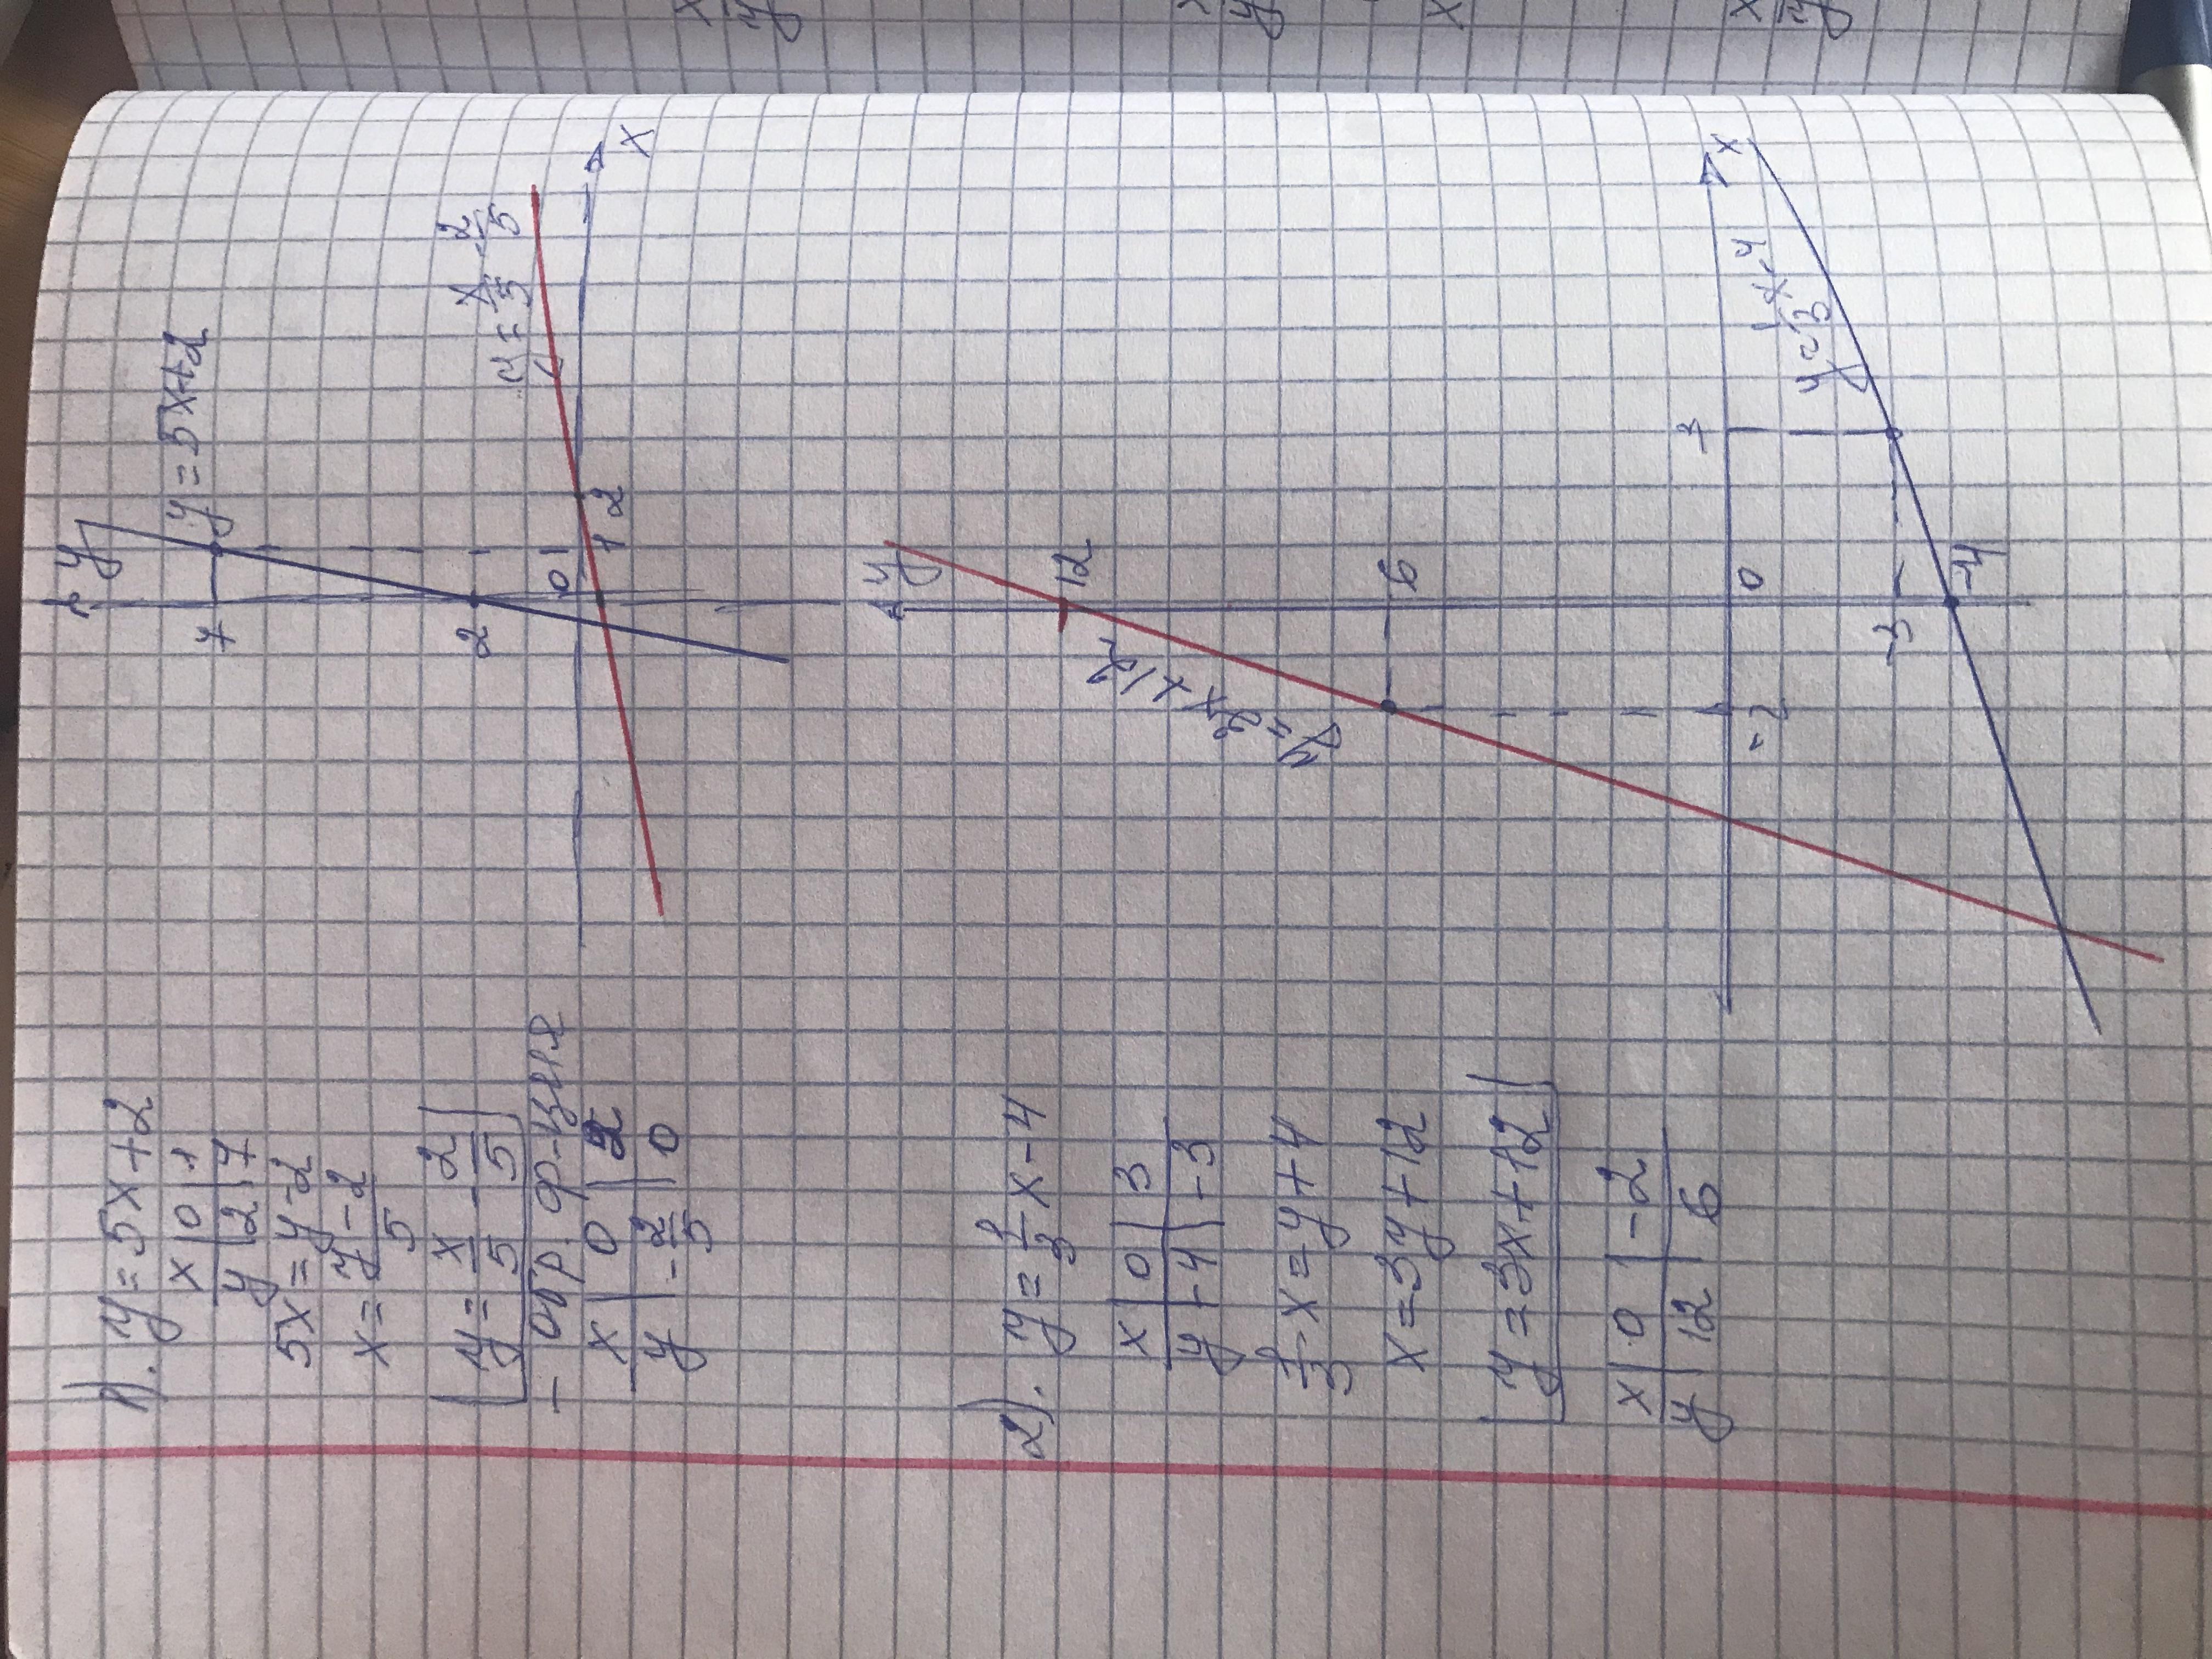 1). y = 5x+2
x | 0 | 1
y | 2 | 7
5x = y-2
x = y-2/5
y = x/5 - 2/5
- обр. ф-ция
x | 0 | 2
y | -2/5 | 0
y
7
y = 5x+2
2
0
1
2
x
y = x/5 - 2/5
2). y = 1/3 x - 4
x | 0 | 3
y | -4 | -3
1/3 x = y+4
x = 3y+12
y = 3x+12
x | 0 | -2
y | 12 | 6
y
12
y = 3x+12
6
-2
0
3
x
y = 1/3 x-4
-3
-4
x
y
x
y
x
x
y